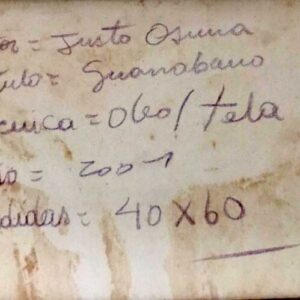 or = Justo Osuna
tulo = Guanabano
cnica = Oleo / tela
ño = 2001
didas = 40 x 60